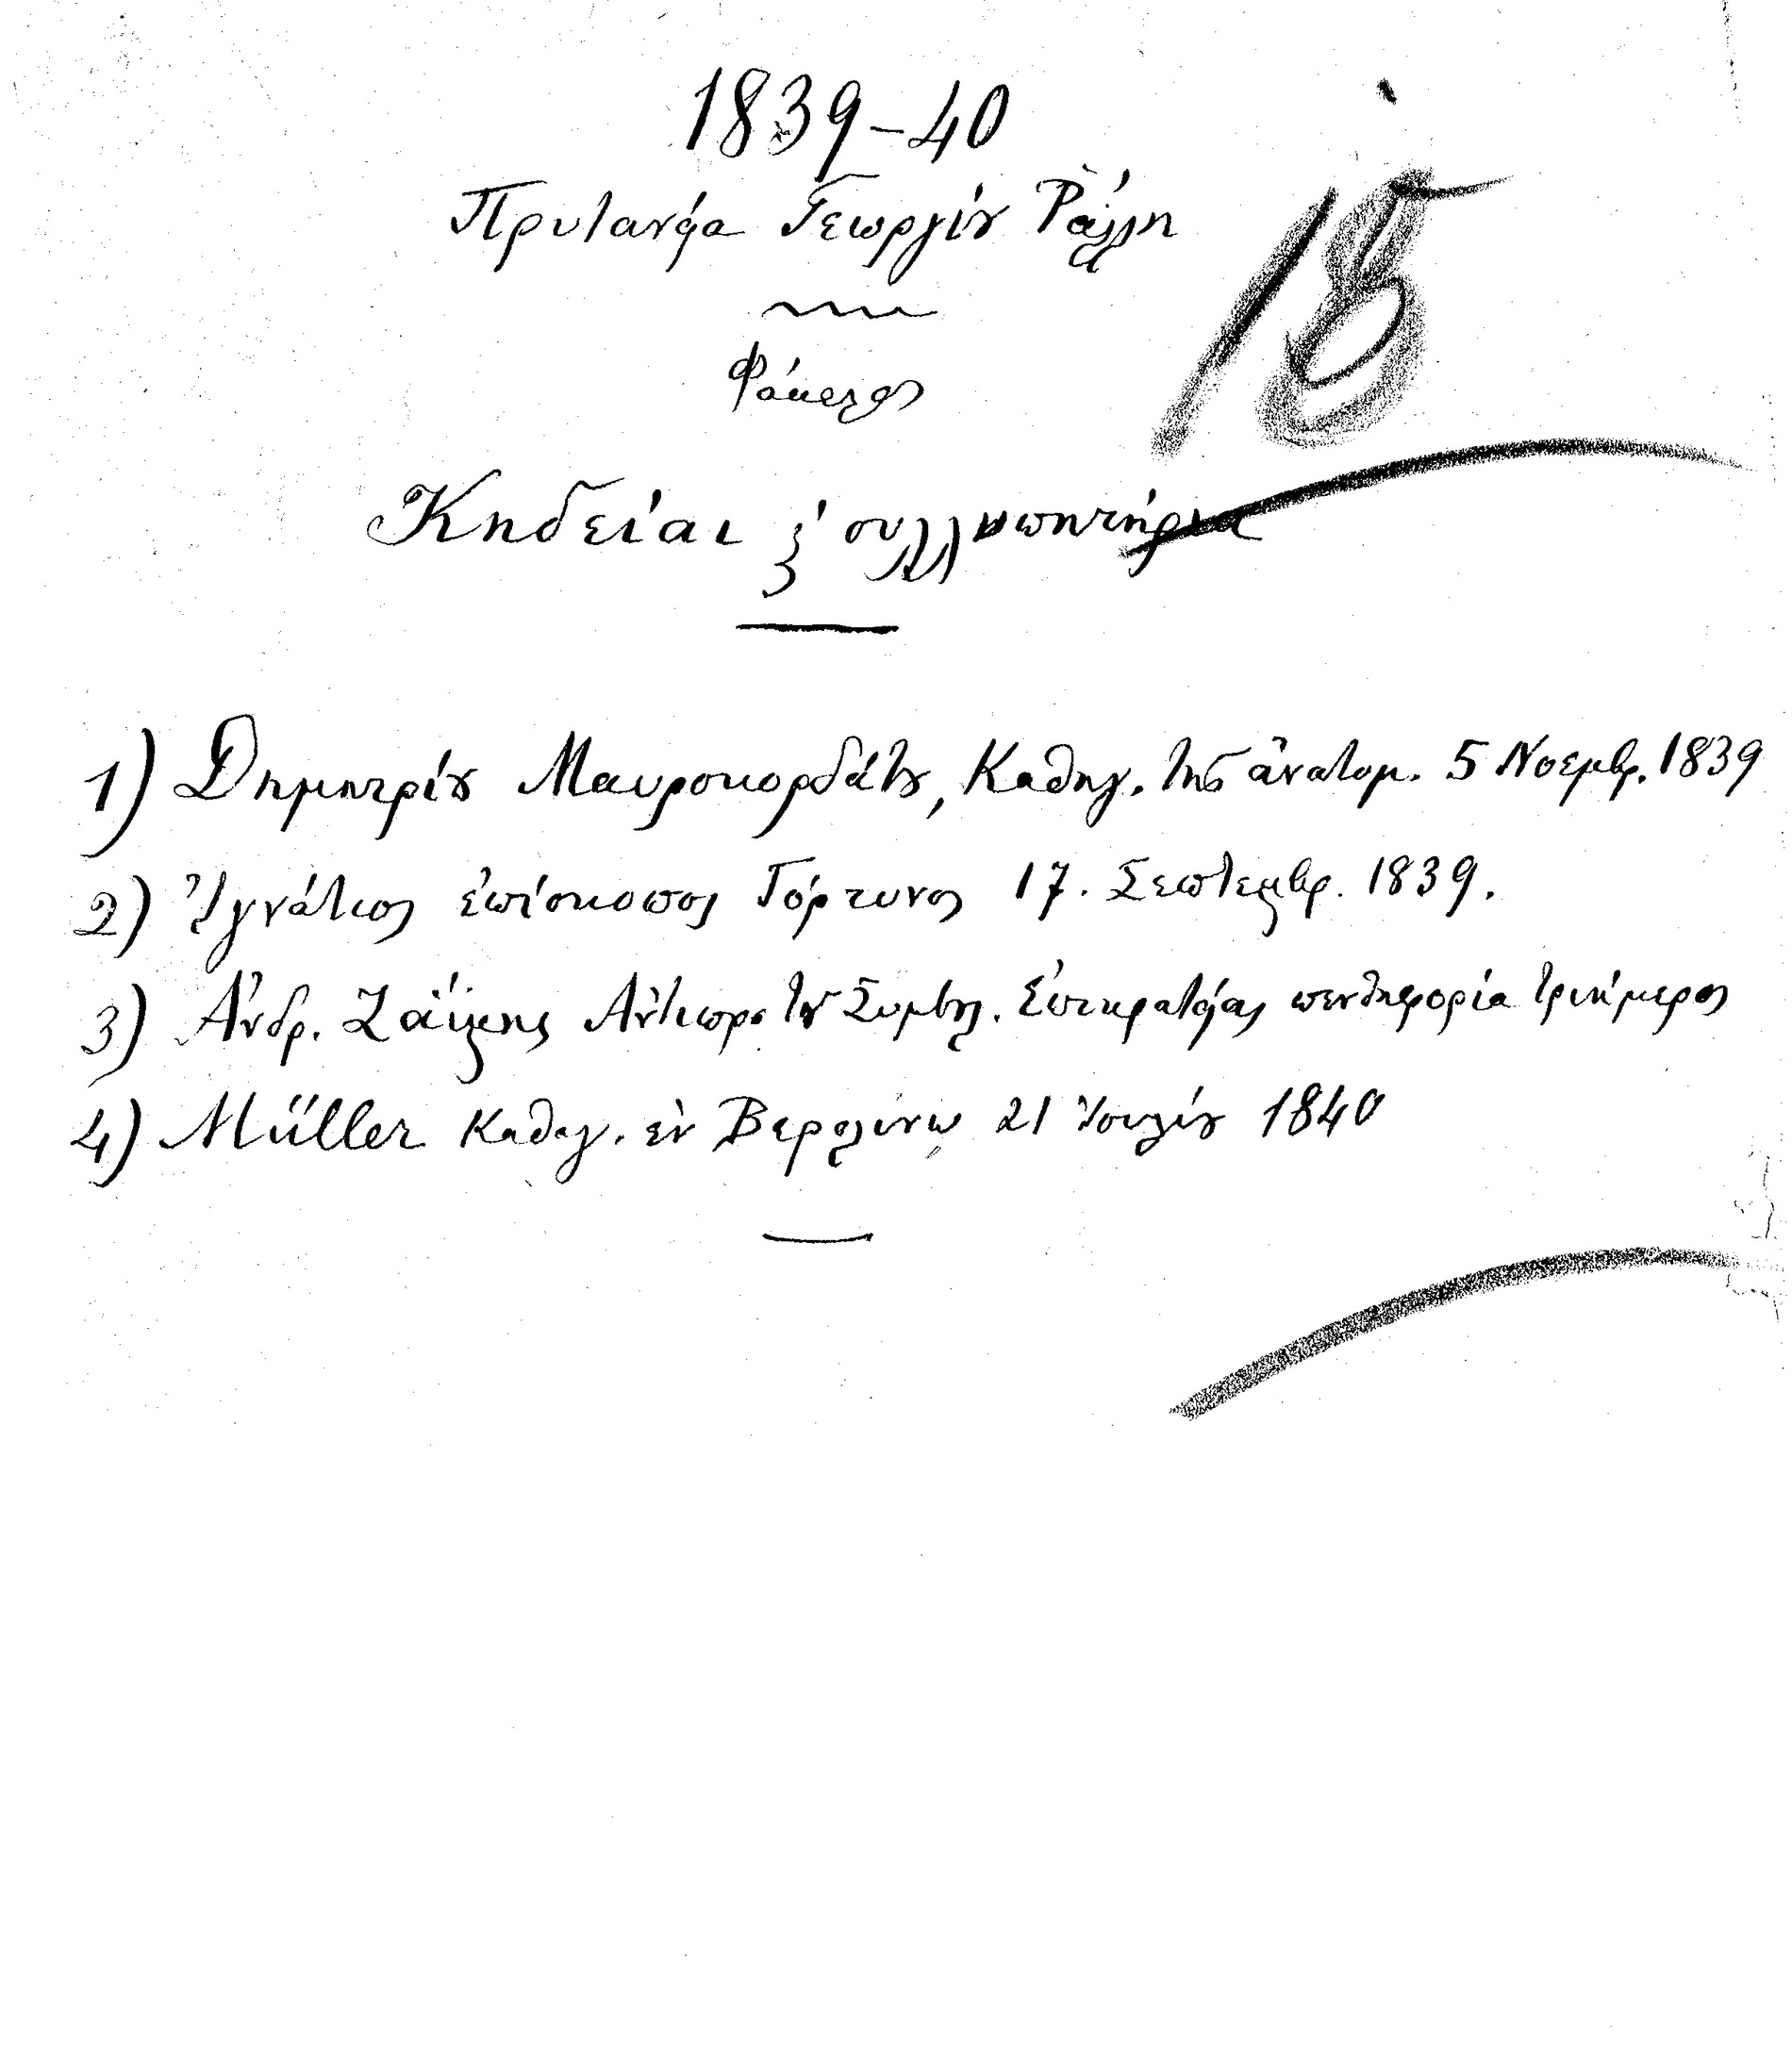 1839-40
Πρυτανεία Γεωργίου Ράλλη
18
Φάκελος
Κηδεῖαι & συλλυπητήρια
1) Δημητρίου Μαυροκορδάτου, Καθηγ. της ἀνατομ. 5 Νοεμβρ. 1839
2) Ἰγνάτιος ἐπίσκοπος Γόρτυνος 17. Σεπτεμβρ. 1839.
3) Ἀνδρ. Ζαΐμης Ἀντιπρ. τοῦ Συμβουλ. Ἐπικρατείας πενθηφορία τριήμερος
4) Müller Καθηγ. ἐν Βερολίνῳ 21 Ἰουλίου 1840